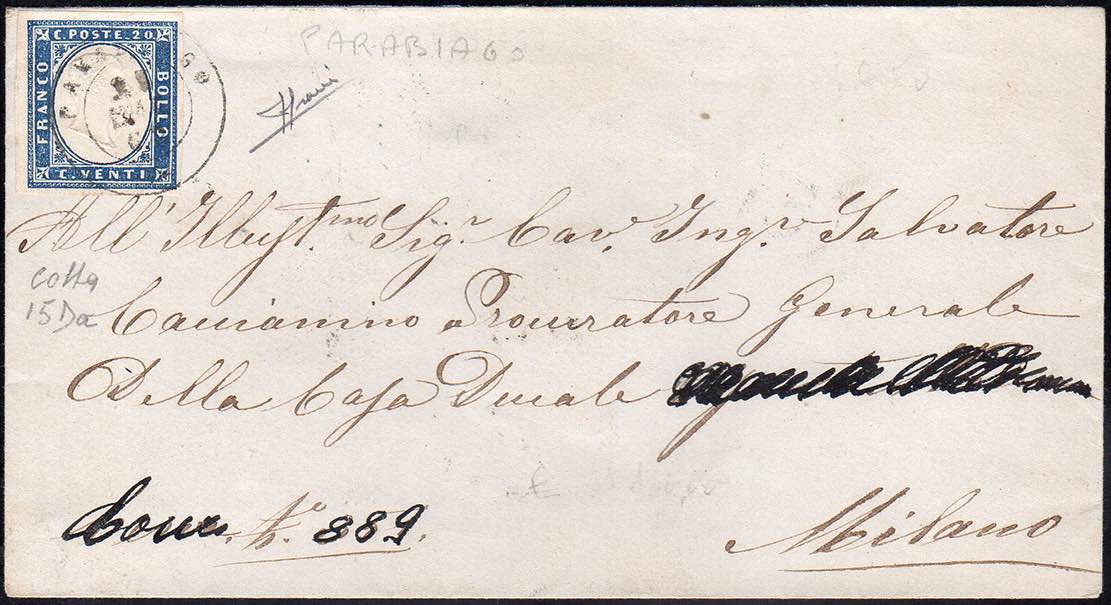 C. POSTE. 20
FRANCO
BOLLO
C. VENTI
PARABIAGO
PARABIAGO
All' Illust.mo Sig.r Cav. Ing.r Salvatore
cotta
15Da
Procuratore Generale
Della Casa Ducale
N.o 889.
Milano